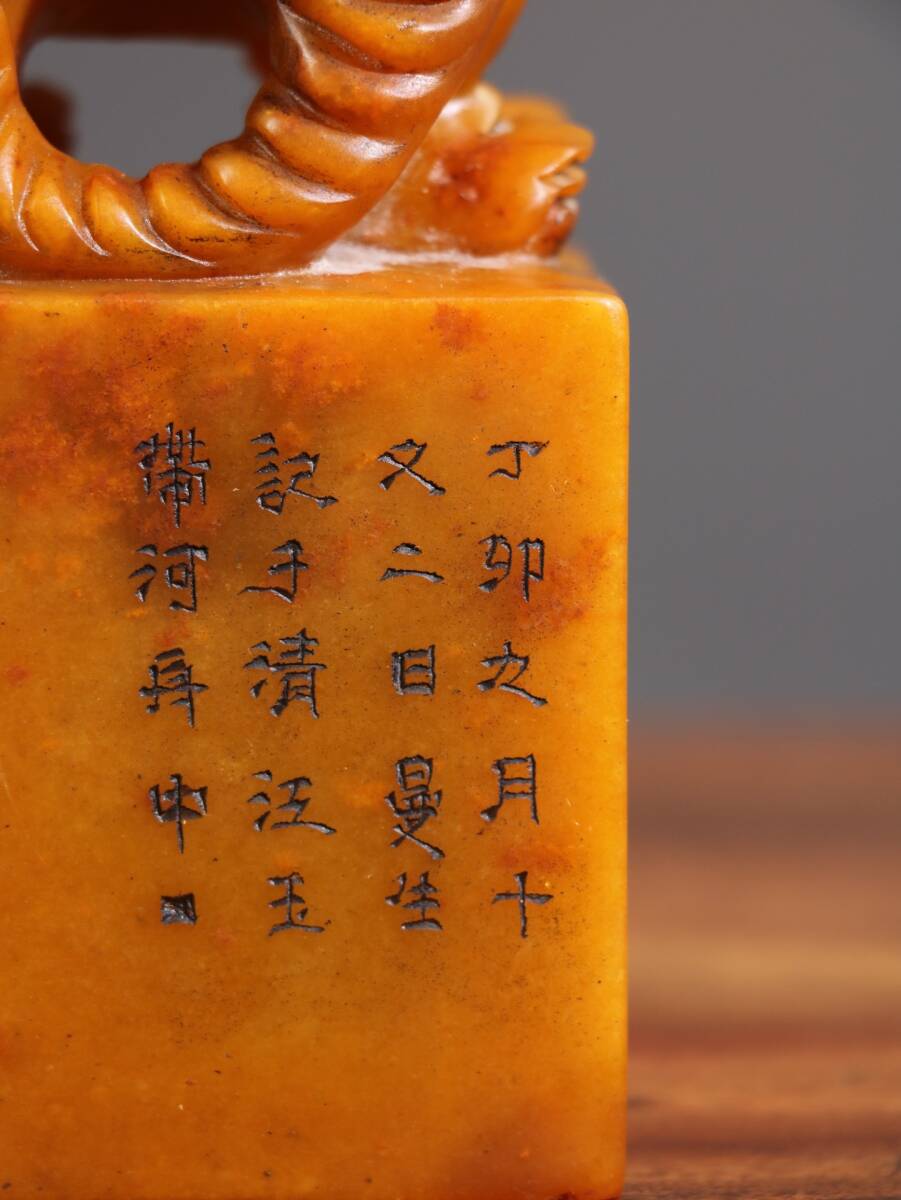 丁卯九月十
又二日曼生
記于清江玉
帶河舟中